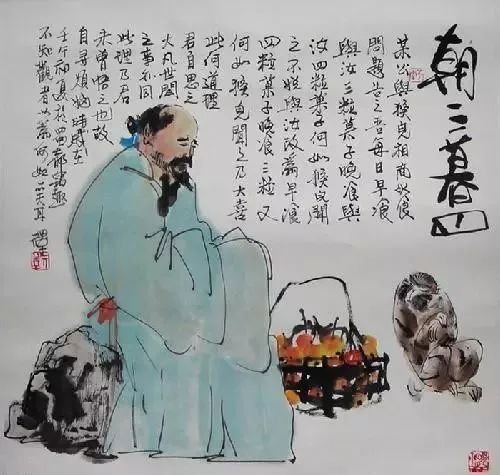 朝三暮四
某公與猴兒相商以食
問題告之吾每日早飡
與汝三粒菓子晚飡與
汝四粒菓子何如猴兒聞
之不悅與汝改為早飡
四粒菓子晚飡三粒又
何如猴兒聞之乃大喜
此何道理
君自思之
大凡世間
之事亦同
此理乃君
未曾悟之也故
自尋煩惱
壬午初夏於
不知觀者以為何如